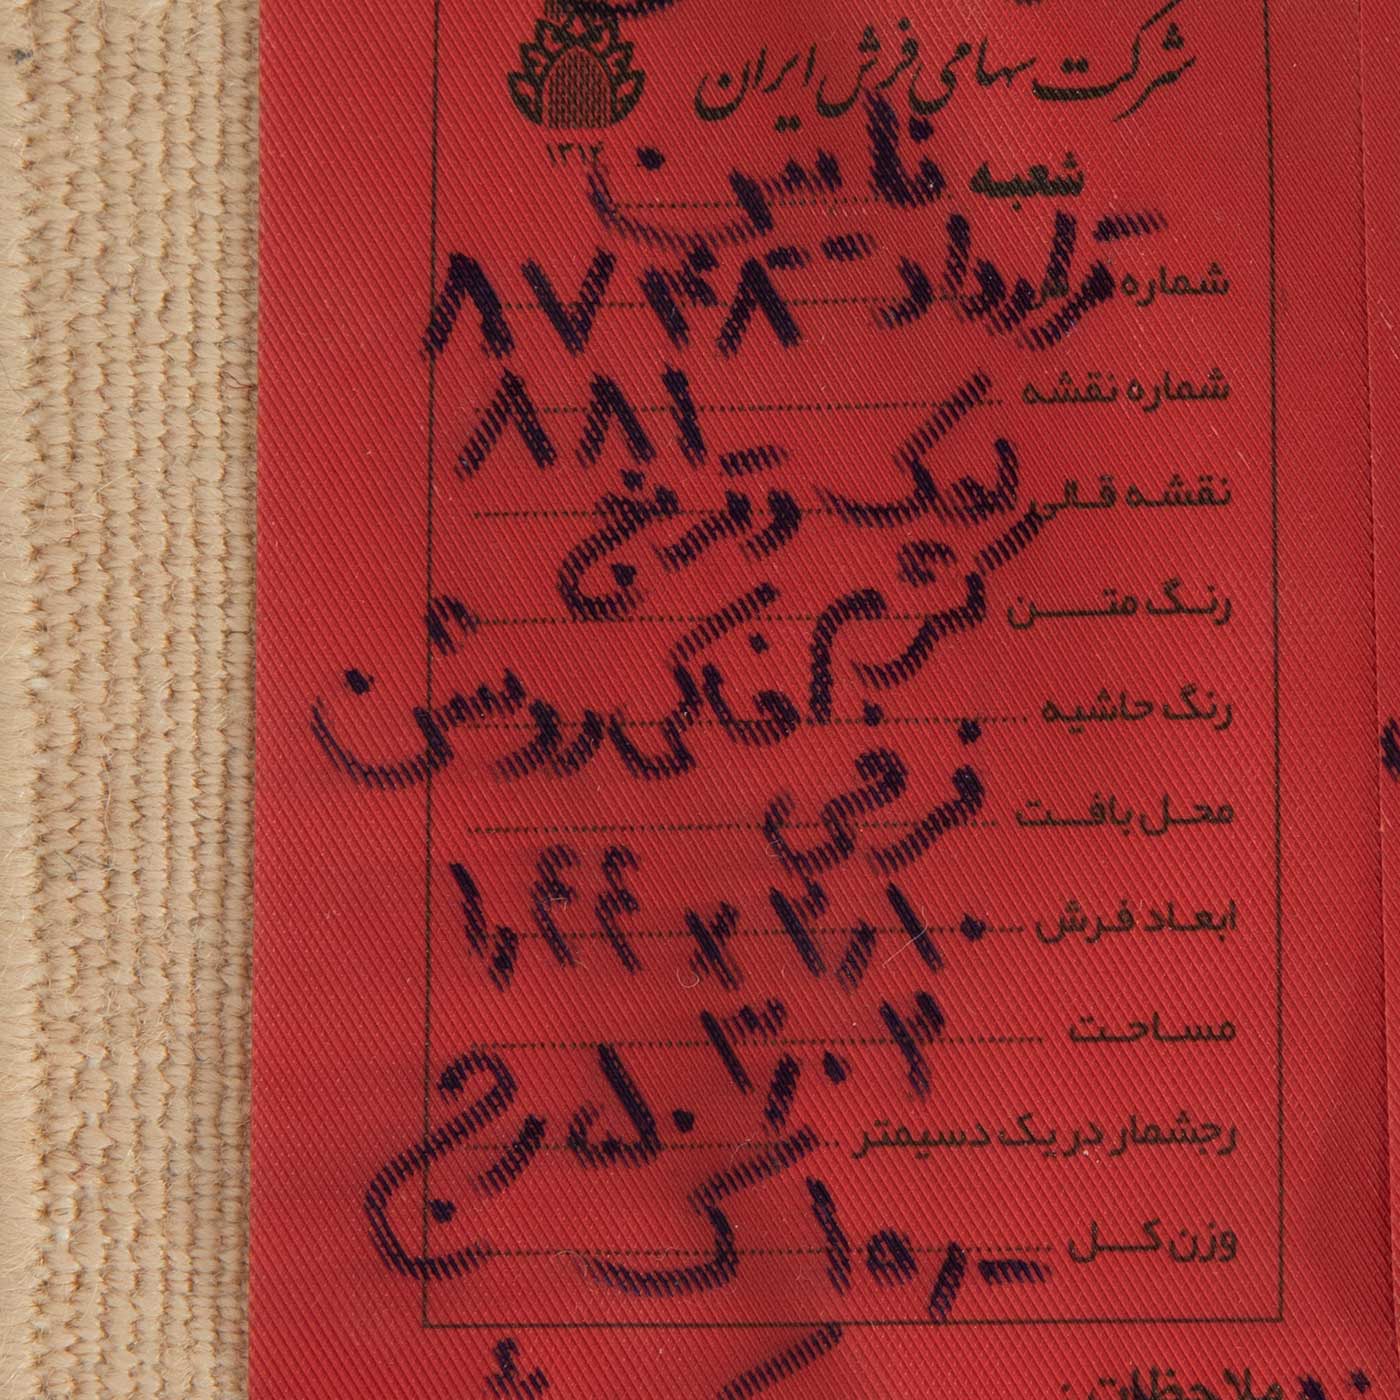 شرکت سهامی فرش ایران
۱۳۱۲
شعبه نائین
شماره فرش
۸۷۴۸
شماره نقشه ۸۸۱
نقشه قالی لچک و ترنج
رنگ متن کرم
رنگ حاشیه خاکی روشن
محل بافت
ابعاد فرش ۲,۱۰ × ۱,۴۴
مساحت ۳,۰۲
رجشمار در یک دسیمتر
وزن کل
ملاحظات :